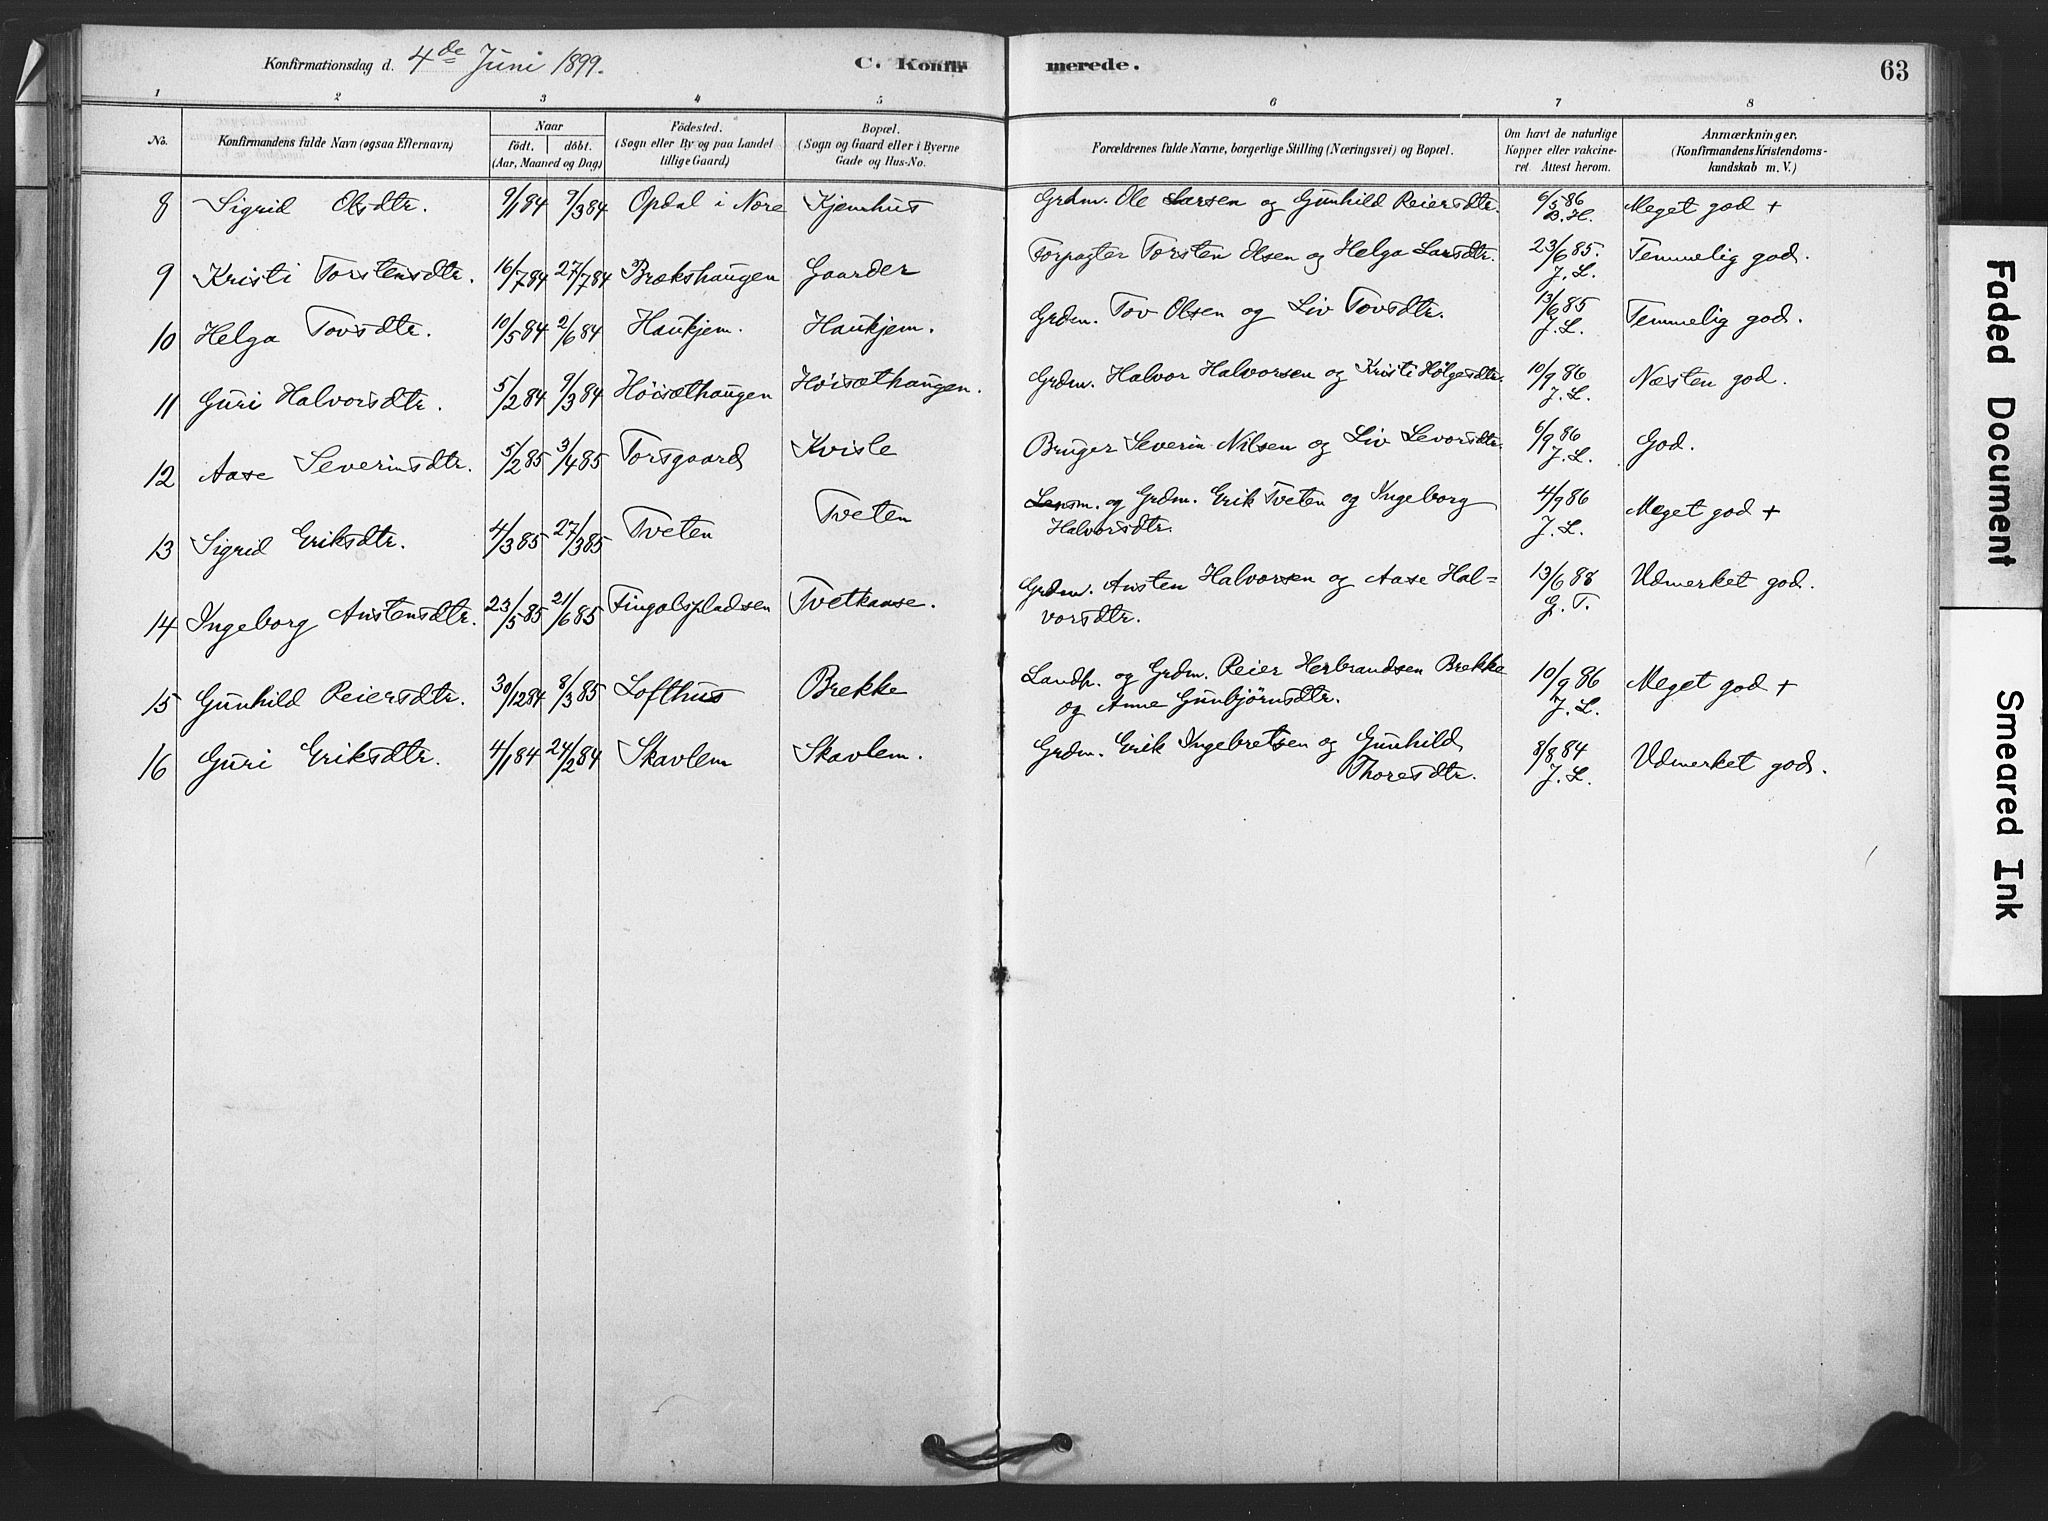 Konfirmationsdag d. 4de Juni 1899.
C. Konfirmerede.
63
1 2 3 4 5 6 7 8
No.
Konfirmandens fulde Navn (ogsaa Efternavn)
Naar
Födt. döbt.
(Aar, Maaned og Dag)
Födested.
(Sogn eller By og paa Landet
tillige Gaard)
Bopæl.
(Sogn og Gaard eller i Byerne
Gade og Hus-No.
Forældrenes fulde Navne, borgerlige Stilling (Næringsvei) og Bopæl.
Om havt de naturlige
Kopper eller vakcine-
ret Attest herom.
Anmærkninger,
(Konfirmandens Kristendoms-
kundskab m. V.)
8 Sigrid Olsdtr. 9/1 84 9/3 84 Opdal i Nore Kjemhus Grdm. Ole Larsen og Gunhild Reiersdtr. 6/5 86 Meget god +
B.H.
9 Kristi Torstensdtr. 16/7 84 27/7 84 Brækshaugen Gaarder Forpagter Torsten Olsen og Helga Larsdtr. 23/6 85. Temmelig god.
J. L.
10 Helga Tovsdtr. 10/5 84 2/6 84 Haukjem. Haukjem. Grdm. Tov Olsen og Liv Tovsdtr. 13/6 85 Temmelig god.
J. L.
11 Guri Halvorsdtr. 5/2 84 9/3 84 Høisæthaugen Høisæthaugen. Grdm. Halvor Halvorsen og Kristi Helgesdtr. 10/9 86 Næsten god.
J. L.
12 Aase Severinsdtr. 5/2 85 3/4 85 Torsgaard Kvisle Bruger Severin Nilsen og Liv Levorsdtr. 6/9 86 God.
J. L.
13 Sigrid Eriksdtr. 4/3 85 27/3 85 Tveten Tveten Lensm. og Grdm. Erik Tveten og Ingeborg 4/9 86 Meget god +
Halvorsdtr. J. L.
14 Ingeborg Anstensdtr. 23/5 85 21/6 85 Fingalspladsen Tvetkaase. Grdm. Ansten Halvorsen og Aase Hal=
vorsdtr. 13/6 88 Udmerket god.
G. T.
15 Gunhild Reiersdtr. 30/12 84 8/3 85 Lofthus Brekke Landh. og Grdm. Reier Herbrandsen Brekke 10/9 86 Meget god +
og Anne Gunbjørnsdtr. J. L.
16 Guri Eriksdtr. 4/1 84 24/2 84 Skavlem Skavlem. Grdm. Erik Ingebretsen og Gunhild 8/8 84 Udmerket god.
Thoresdtr. J. L.
Faded Document
Smeared Ink